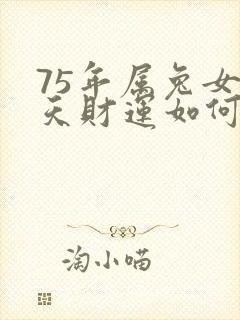 75年属兔女
天财运如何
淘小喵